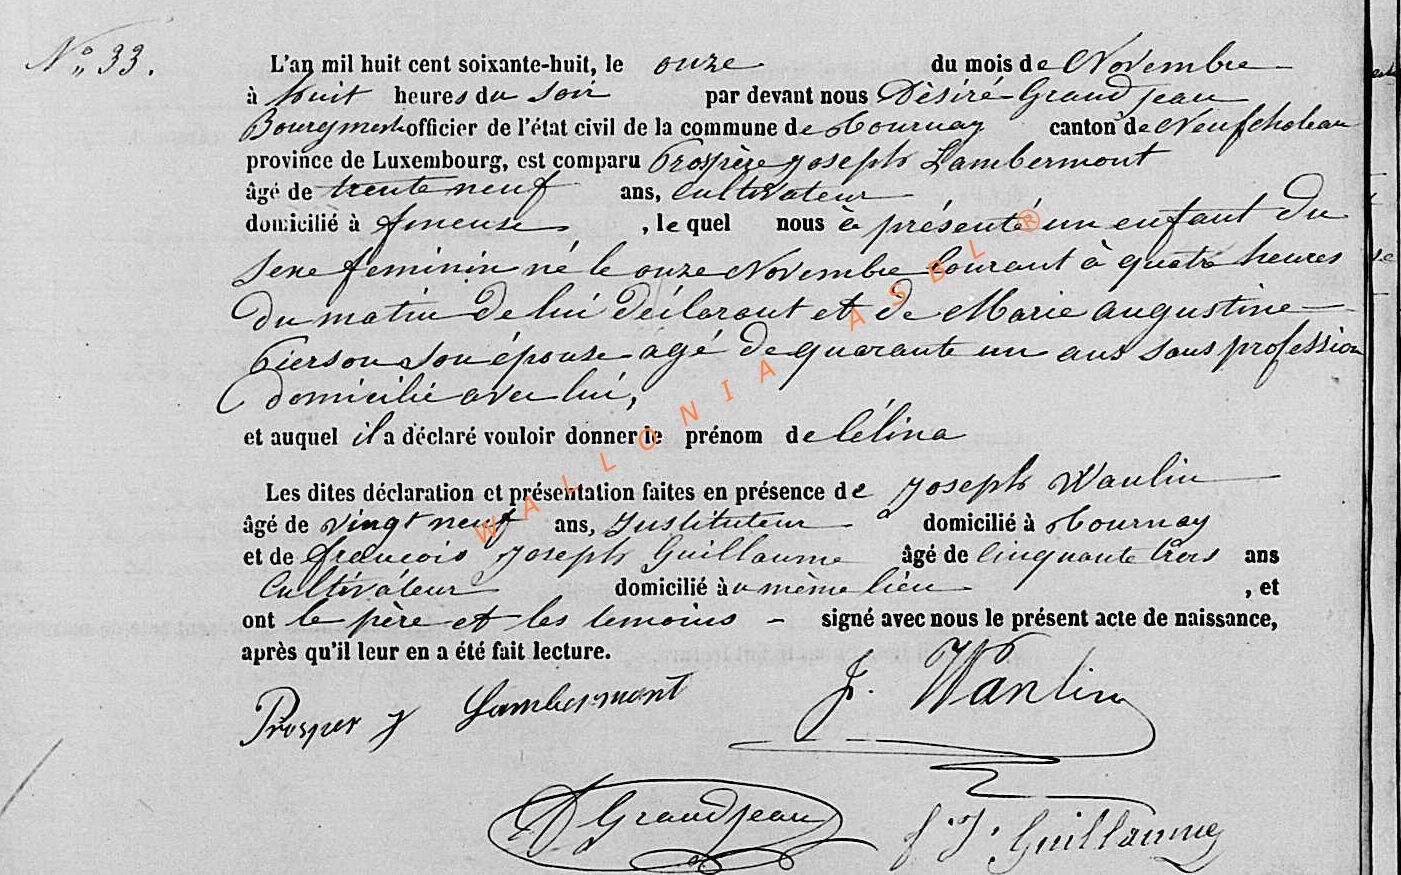 No 33.
L'an mil huit cent soixante-huit, le onze du mois de Novembre
à huit heures du soir par devant nous Désiré Grandjean
Bourgmestre officier de l'état civil de la commune de Tournay canton de Neufchateau
province de Luxembourg, est comparu Prospère Joseph Lambermont
âgé de trente neuf ans, Cultivateur
domicilié à , le quel nous à présenté un enfant du
sexe feminin né le onze Novembre courant à quatre heures
du matin de lui déclarant et de Marie Augustine
Pierson son épouse agé de quarante un ans sans profession
domicilié avec lui,
et auquel il a déclaré vouloir donner le prénom de Célina
Les dites déclaration et présentation faites en présence de Joseph Wanlin
âgé de vingt neuf ans, Instituteur domicilié à Tournay
et de François Joseph Guillaume âgé de cinquante trois ans
Cultivateur domicilié au même lieu , et
ont le père et les temoins signé avec nous le présent acte de naissance,
après qu'il leur en a été fait lecture.
Prosper J Lambermont J. Wanlin
D Grandjean f. J. Guillaume
WALLONIA ASBL ®